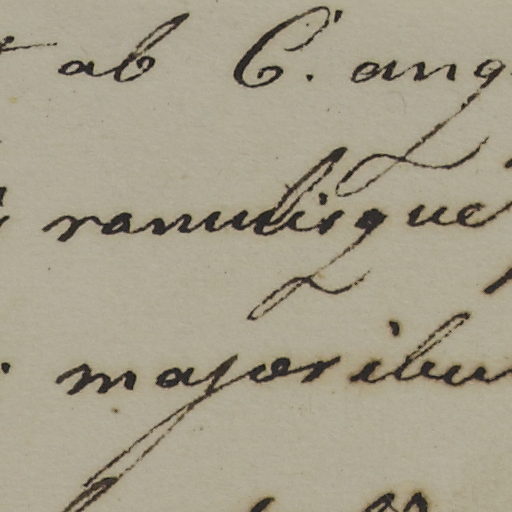 ab C. ang
ramulisque
majoribu